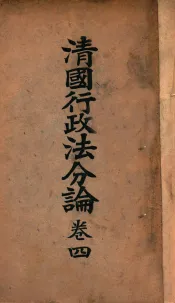 清國行政法分論卷四